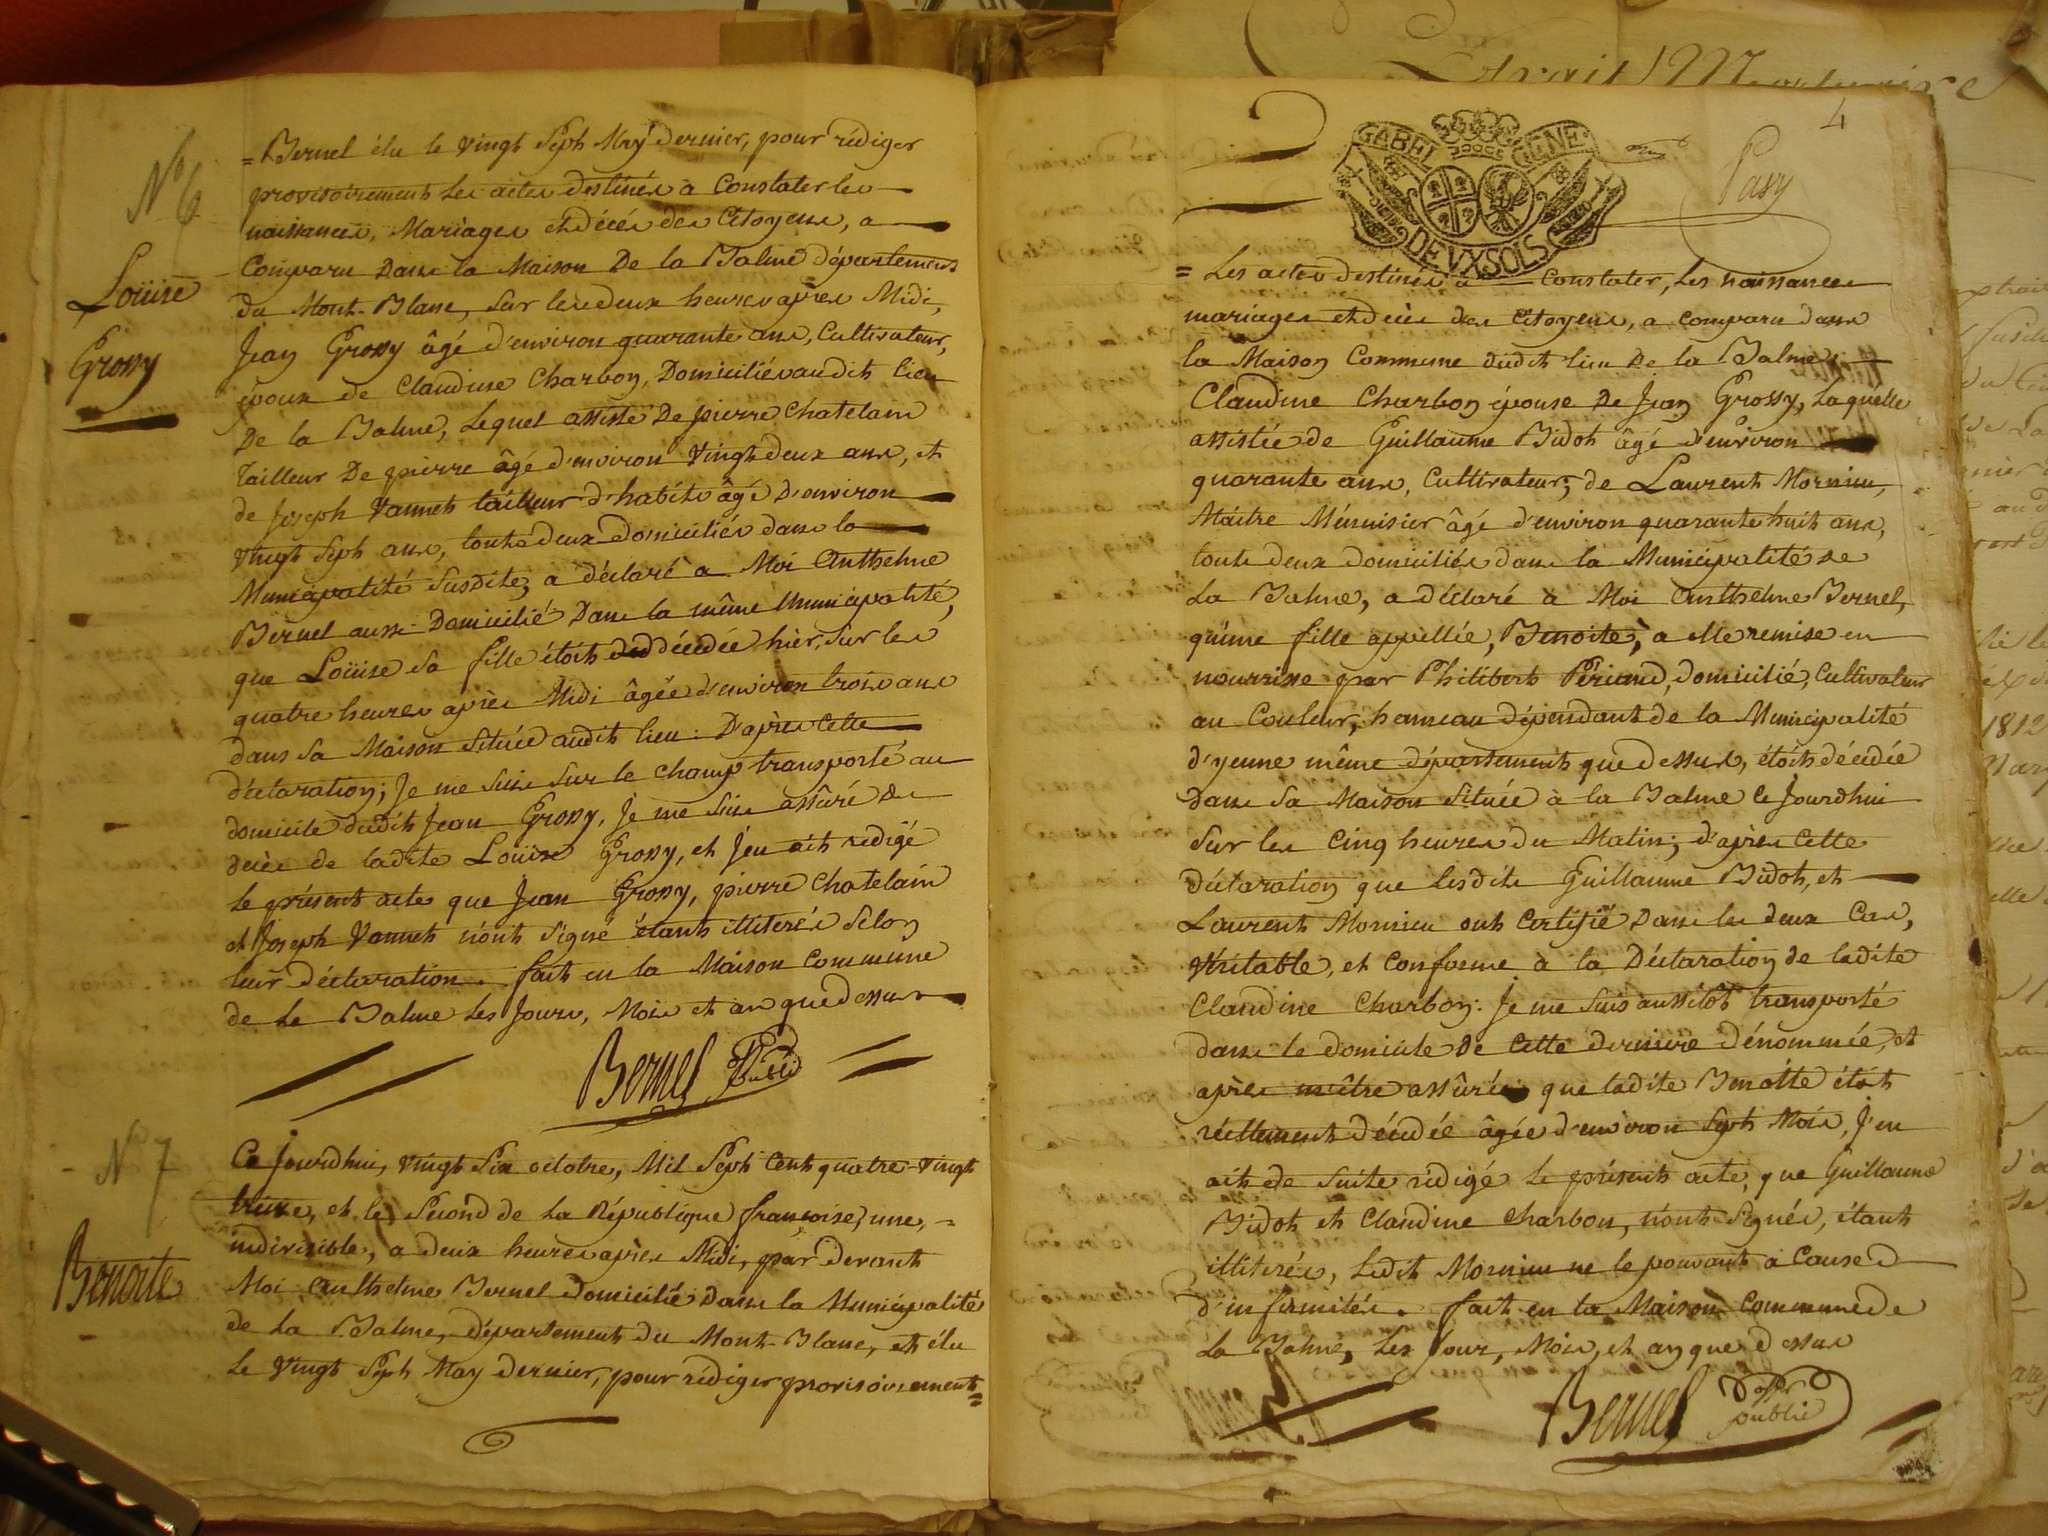 N° 6
Loüise
Grossy
= Bernel élu le vingt Sept May dernier, pour rédiger
provisoirement les actes destinés a Constater les
naissances, Mariages et décés des Citoyens, a
Comparu Dans la Maison De la Balme département
du Mont-Blanc, Sur les deux heures après Midi,
Jean Grossy âgé d'environ quarante ans, Cultivateur,
époux de Claudine Charbon, Domicilié audit lieu
De la Balme, Lequel assisté De pierre Chatelain
tailleur De pierre âgé d'environ Vingt deux ans, et
de Joseph Vannet tailleur d'habits âgé d'environ
vingt Sept ans, touts deux domiciliés dans la
Municipalité Susdite, a déclaré a Moi Anthelme
Bernel aussi Domicilié Dans la même Municipalité,
que Loüise Sa fille étoit décédée hiér, Sur les
quatre heures après Midi âgée d'environ trois ans
dans Sa Maison Située audit lieu. D'après Cette
déclaration; Je me Suis Sur le champ transporté au
domicile dudit Jean Grossy, Je me Suis assûré du
decés de ladite Loüise Grossy, et J'en ait rédigé
le présent acte que Jean Grossy, pierre Chatelain
et Joseph Vannet n'ont Signé étants illiterés Selon
leur déclaration. fait en la Maison Commune
de la Balme Les Jours, Mois et an que dessus
Bernel Off. public
N° 7
Benoite
Ce Jourdhui, vingt Six octobre, Mil Sept Cent quatre-vingt
treize, et le Second de La République françoise, une,
indivisible, a deux heures après Midi, par devant
Moi Anthelme Bernel domicilié Dans la Municipalité
de La Balme, département du Mont-Blanc, et élu
le Vingt Sept May dernier, pour rédiger provisoirement =
4
GABEL GNE
DEVX SOLS
Pavy
= Les actes destinés a Constater, Les naissances
mariages et décés des Citoyens, a comparu dans
la Maison Commune dudit lieu De la Balme
Claudine Charbon épouse De Jean Grossy, Laquelle
assistée de Guillaume Bidot âgé d'environ
quarante ans, Cultivateur; de Laurent Mornieu,
Maitre Ménuisier âgé d'environ quarante huit ans,
touts deux domiciliés dans la Municipalité de
La Balme, a déclaré à Moi Anthelme Bernel,
qu'une fille appellée, Benoite, a elle remise en
nourrisse par Philibert Périand, domicilié, Cultivateur
au Couleur, hameau dépendant de la Municipalité
d'yenne même département que dessus, étoit décédée
dans Sa Maison Située à la Balme Ce Jourdhui
Sur les Cinq heures du Matin; d'après Cette
déclaration que lesdits Guillaume Bidot, et
Laurent Mornieu ont Certifié Dans les deux Cas,
Véritable, et Conforme à la Déclaration de ladite
Claudine Charbon: Je me Suis aussitôt transporté
dans le domicile De Cette derniere dénommée, et
après m'être assûrée que ladite Benoite étoit
réellement décédée âgée d'environ Sept Mois, J'en
ait de Suite rédigé le présent acte, que Guillaume
Bidot et Claudine Charbon, n'ont Signés, étant
illiterés, Ledit Mornieu ne le pouvant a Cause
d'infirmités. fait en la Maison Commune de
La Balme, Les Jour, Mois, et an que dessus
Bernel Off.r public
1812